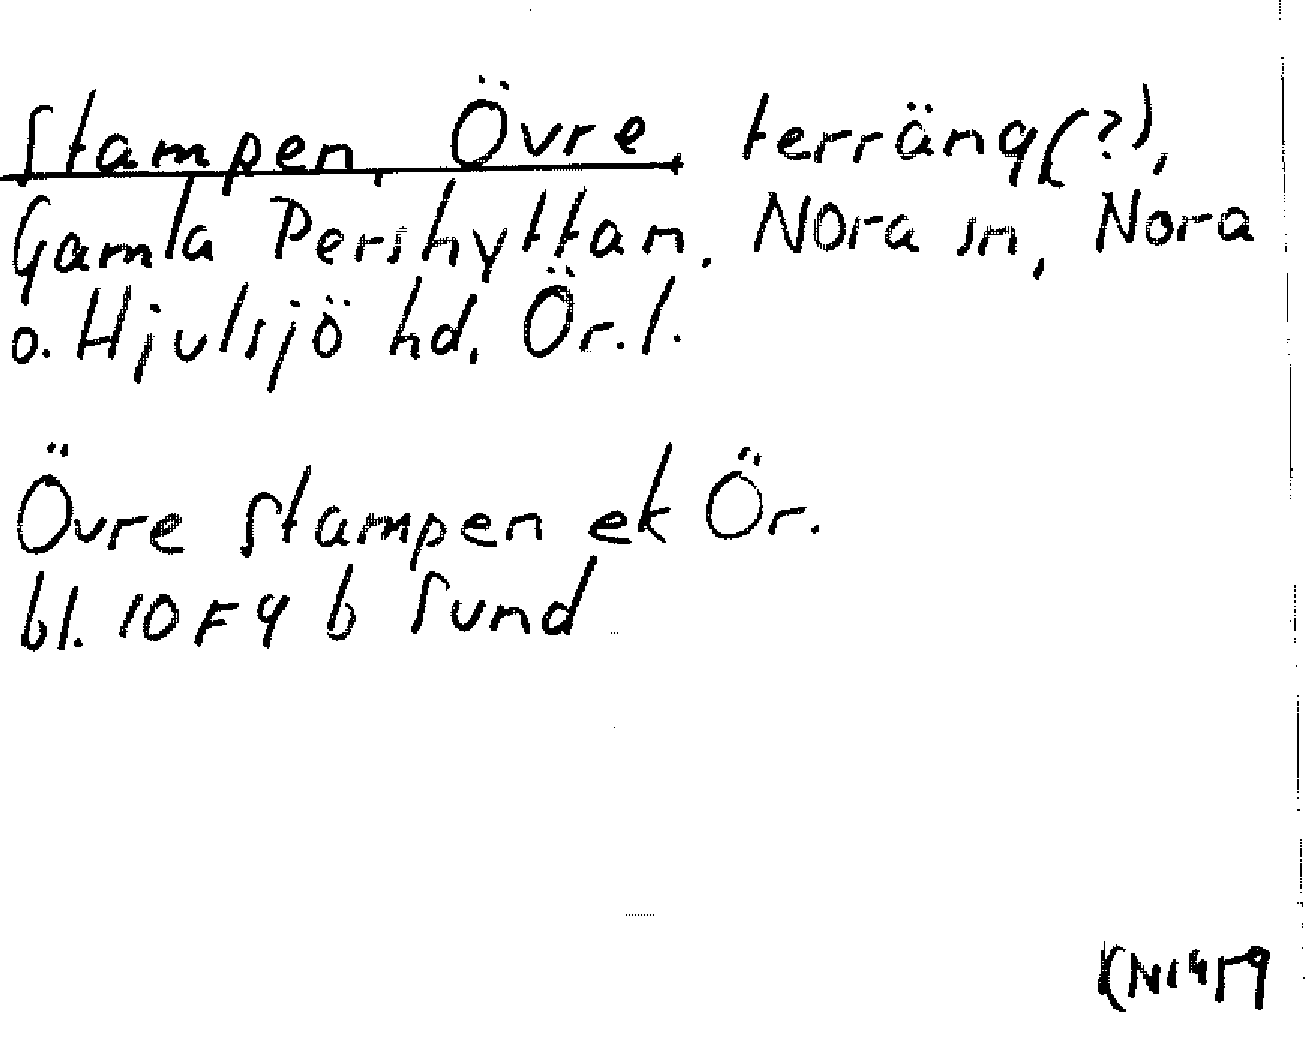 Stampen, Övre, terräng(?),
Gamla Pershyttan, Nora sn, Nora
o. Hjulsjö hd, Ör.l.
Övre Stampen ek Ör.
bl. 10F4b Sund